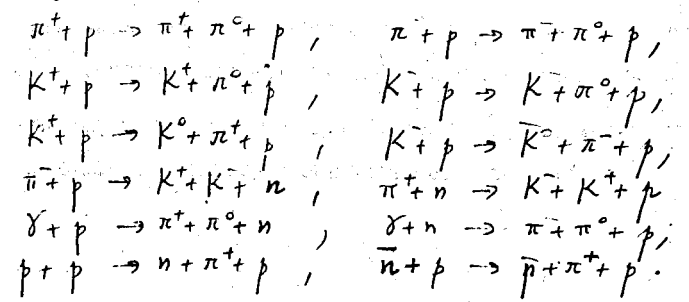 π⁺ + p → π⁺ + π⁰ + p , π⁻ + p → π⁻ + π⁰ + p ,
K⁺ + p → K⁺ + π⁰ + p , K⁻ + p → K⁻ + π⁰ + p ,
K⁺ + p → K⁰ + π⁺ + p , K⁻ + p → K̄⁰ + π⁻ + p ,
π⁻ + p → K⁺ + K⁻ + n , π⁺ + n → K⁻ + K⁺ + p
γ + p → π⁺ + π⁰ + n , γ + n → π⁻ + π⁰ + p ,
p + p → n + π⁺ + p , n̄ + p → p̄ + π⁺ + p .